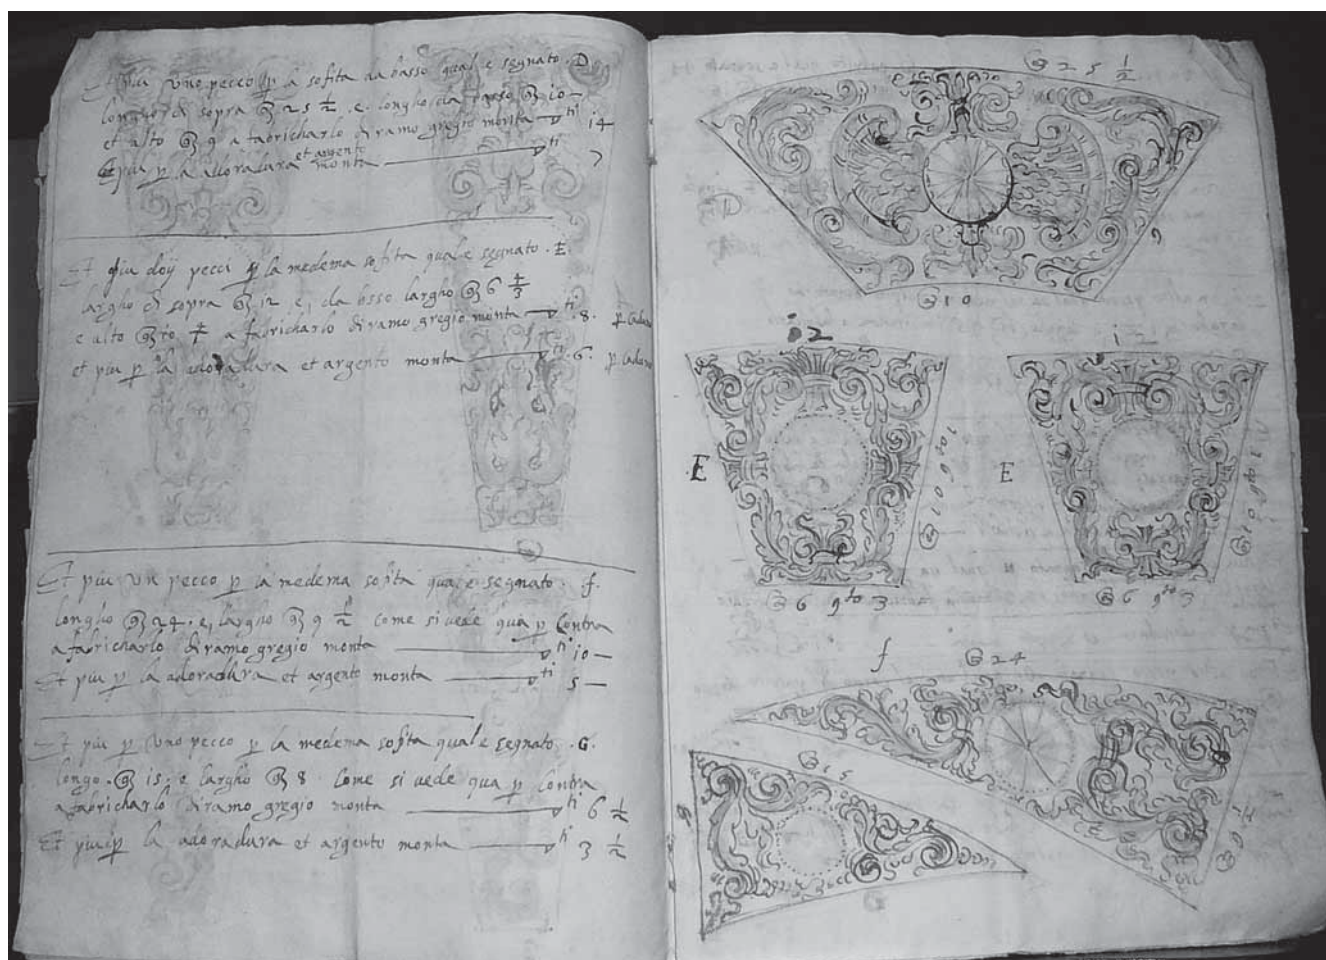 Et piu uno pecco p la sofita da basso qual e segnato . D
longho di sopra 25 1/2 . e . longho da basso 10 —
et alto 9 a fabricharlo di ramo gregio monta — ti 14
et argento
Et piu p la adoradura monta — ti 7
Et piu doy pecci p la medema sofita qual e segnato . E .
largho di sopra 12 e, da basso largho 6
e alto 10 a fabricharlo di ramo gregio monta — ti . 8 .
et piu p la adoradura et argento monta — ti . 6 .
Et piu un pecco p la medema sofita qual e segnato . f .
longho 24 . e, largho 9 1/2 come si vede qua p Contra
a fabricharlo di ramo gregio monta — ti 10 —
Et piu p la adoradura et argento monta — ti 5 —
Et piu p uno pecco p la medema sofita qual e segnato . G .
longo . 15 . e largho 8 Come si vede qua p Contra
a fabricharlo di ramo gregio monta — ti 6 1/2
Et piu p la adoradura et argento monta — ti 3 1/2
25 1/2
D
9
10
12
12
E
E
10
10
6 qto 3
6 qto 3
f
24
15
9
G